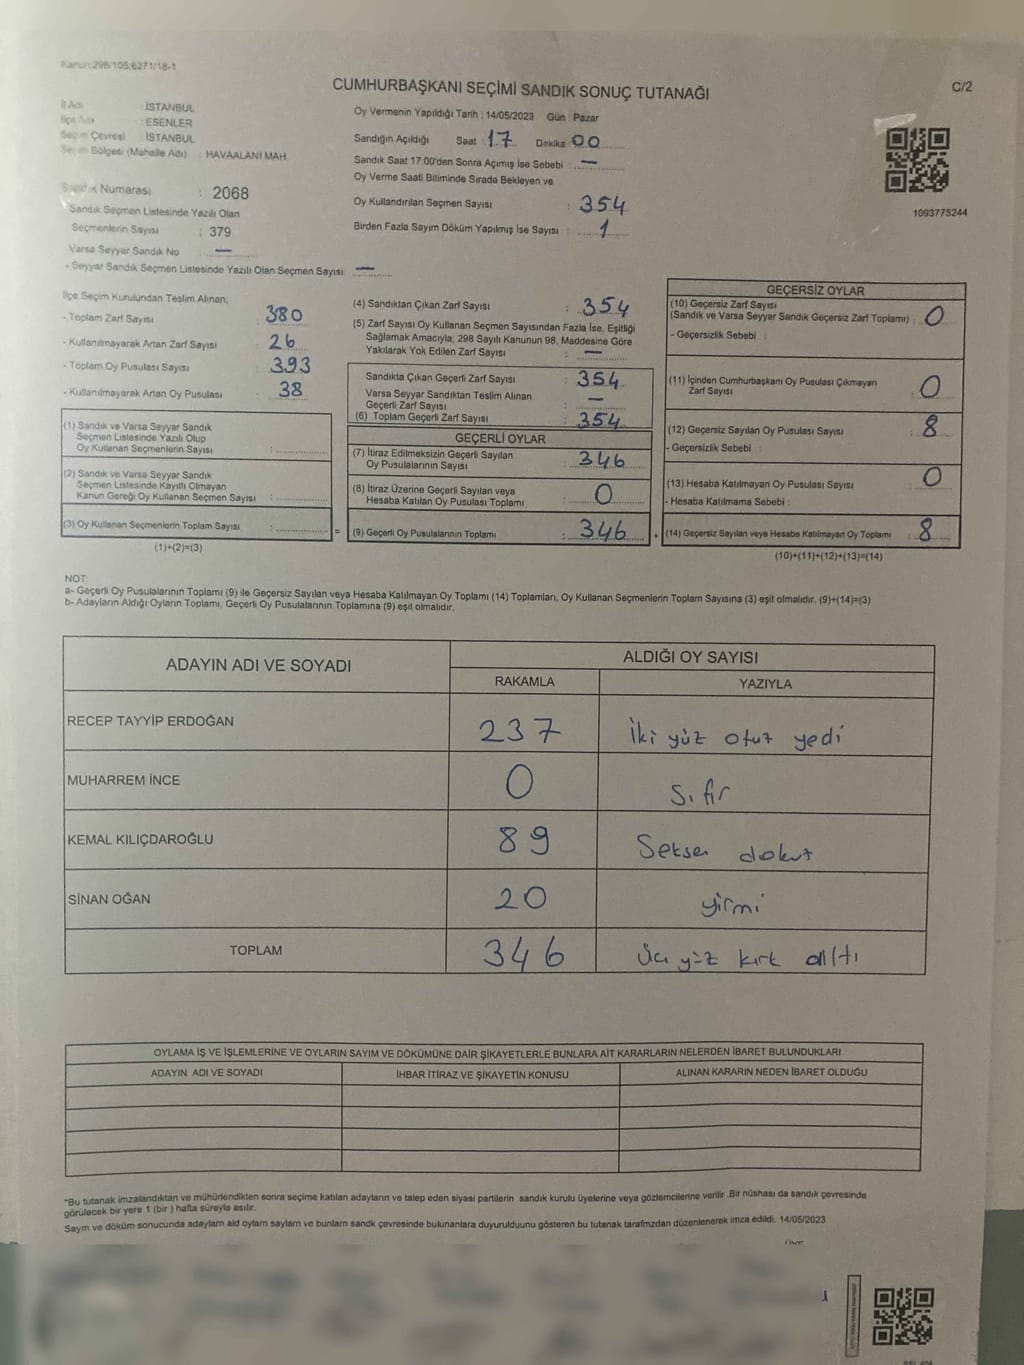 Kanun:298/105;6271/18-1
CUMHURBAŞKANI SEÇİMİ SANDIK SONUÇ TUTANAĞI
C/2
İl Adı : İSTANBUL
İlçe Adı : ESENLER
Seçim Çevresi : İSTANBUL
Seçim Bölgesi (Mahalle Adı) : HAVAALANI MAH.
Sandık Numarası : 2068
Sandık Seçmen Listesinde Yazılı Olan
Seçmenlerin Sayısı : 379
Varsa Seyyar Sandık No : —
- Seyyar Sandık Seçmen Listesinde Yazılı Olan Seçmen Sayısı: —
Oy Vermenin Yapıldığı Tarih : 14/05/2023 Gün : Pazar
Sandığın Açıldığı Saat : 17 Dakika : 00
Sandık Saat 17:00'den Sonra Açımış İse Sebebi : —
Oy Verme Saati Bitiminde Sırada Bekleyen ve
Oy Kullandırılan Seçmen Sayısı : 354
Birden Fazla Sayım Döküm Yapılmış İse Sayısı : 1
1093775244
İlçe Seçim Kurulundan Teslim Alınan;
- Toplam Zarf Sayısı : 380
- Kullanılmayarak Artan Zarf Sayısı : 26
- Toplam Oy Pusulası Sayısı : 393
- Kullanılmayarak Artan Oy Pusulası : 38
(1) Sandık ve Varsa Seyyar Sandık
Seçmen Listesinde Yazılı Olup
Oy Kullanan Seçmenlerin Sayısı :
(2) Sandık ve Varsa Seyyar Sandık
Seçmen Listesinde Kayıtlı Olmayan
Kanun Gereği Oy Kullanan Seçmen Sayısı :
(3) Oy Kullanan Seçmenlerin Toplam Sayısı :
(1)+(2)=(3)
(4) Sandıktan Çıkan Zarf Sayısı : 354
(5) Zarf Sayısı Oy Kullanan Seçmen Sayısından Fazla İse, Eşitliği
Sağlamak Amacıyla; 298 Sayılı Kanunun 98. Maddesine Göre
Yakılarak Yok Edilen Zarf Sayısı : —
Sandıkta Çıkan Geçerli Zarf Sayısı : 354
Varsa Seyyar Sandıktan Teslim Alınan
Geçerli Zarf Sayısı : —
(6) Toplam Geçerli Zarf Sayısı : 354
GEÇERLİ OYLAR
(7) İtiraz Edilmeksizin Geçerli Sayılan
Oy Pusulalarının Sayısı : 346
(8) İtiraz Üzerine Geçerli Sayılan veya
Hesaba Katılan Oy Pusulası Toplamı : 0
= (9) Geçerli Oy Pusulalarının Toplamı : 346
GEÇERSİZ OYLAR
(10) Geçersiz Zarf Sayısı
(Sandık ve Varsa Seyyar Sandık Geçersiz Zarf Toplamı) : 0
- Geçersizlik Sebebi :
(11) İçinden Cumhurbaşkanı Oy Pusulası Çıkmayan
Zarf Sayısı : 0
(12) Geçersiz Sayılan Oy Pusulası Sayısı : 8
- Geçersizlik Sebebi :
(13) Hesaba Katılmayan Oy Pusulası Sayısı : 0
- Hesaba Katılmama Sebebi :
+ (14) Geçersiz Sayılan veya Hesaba Katılmayan Oy Toplamı : 8
(10)+(11)+(12)+(13)=(14)
NOT:
a- Geçerli Oy Pusulalarının Toplamı (9) ile Geçersiz Sayılan veya Hesaba Katılmayan Oy Toplamı (14) Toplamları, Oy Kullanan Seçmenlerin Toplam Sayısına (3) eşit olmalıdır. (9)+(14)=(3)
b- Adayların Aldığı Oyların Toplamı, Geçerli Oy Pusulalarının Toplamına (9) eşit olmalıdır.
ADAYIN ADI VE SOYADI ALDIĞI OY SAYISI
RAKAMLA YAZIYLA
RECEP TAYYİP ERDOĞAN 237 İki yüz otuz yedi
MUHARREM İNCE 0 Sıfır
KEMAL KILIÇDAROĞLU 89 Seksen dokuz
SİNAN OĞAN 20 yirmi
TOPLAM 346 Üç yüz kırk altı
OYLAMA İŞ VE İŞLEMLERİNE VE OYLARIN SAYIM VE DÖKÜMÜNE DAİR ŞİKAYETLERLE BUNLARA AİT KARARLARIN NELERDEN İBARET BULUNDUKLARI
ADAYIN ADI VE SOYADI İHBAR İTİRAZ VE ŞİKAYETİN KONUSU ALINAN KARARIN NEDEN İBARET OLDUĞU
*Bu tutanak imzalandıktan ve mühürlendikten sonra seçime katılan adayların ve talep eden siyasi partilerin sandık kurulu üyelerine veya gözlemcilerine verilir .Bir nüshası da sandık çevresinde
görülecek bir yere 1 (bir ) hafta süreyle asılır.
Saym ve döküm sonucunda adaylarn ald oylarn saylarn ve bunlarn sandk çevresinde bulunanlara duyurulduunu gösteren bu tutanak tarafmzdan düzenlenerek imza edildi. 14/05/2023